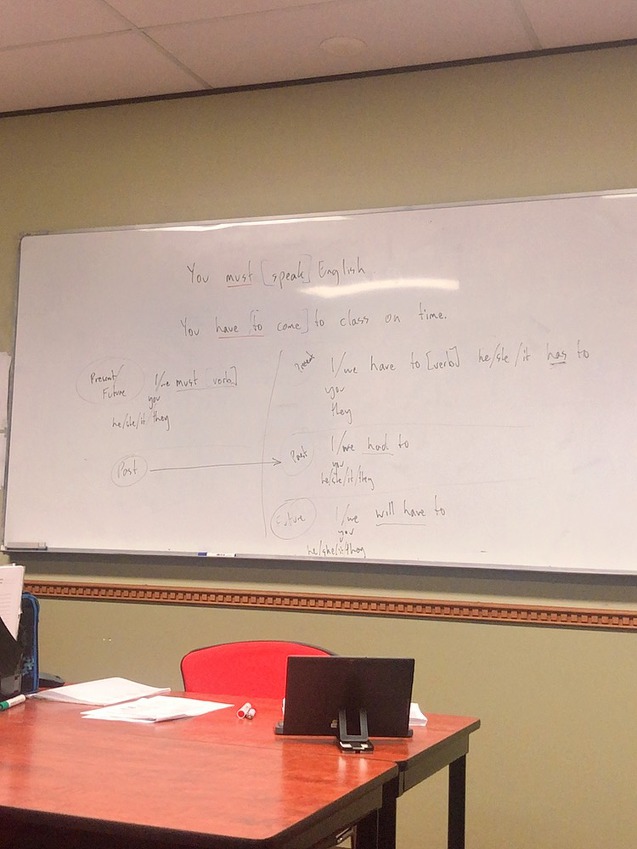 You must [speak] English
You have [to come] to class on time.
Present/
Future
I/we must [verb]
you
he/she/it/they
Past
Present
I/we have to [verb] he/she/it has to
you
they
Past
I/we had to
you
he/she/it/they
Future
I/we will have to
you
he/she/it/they